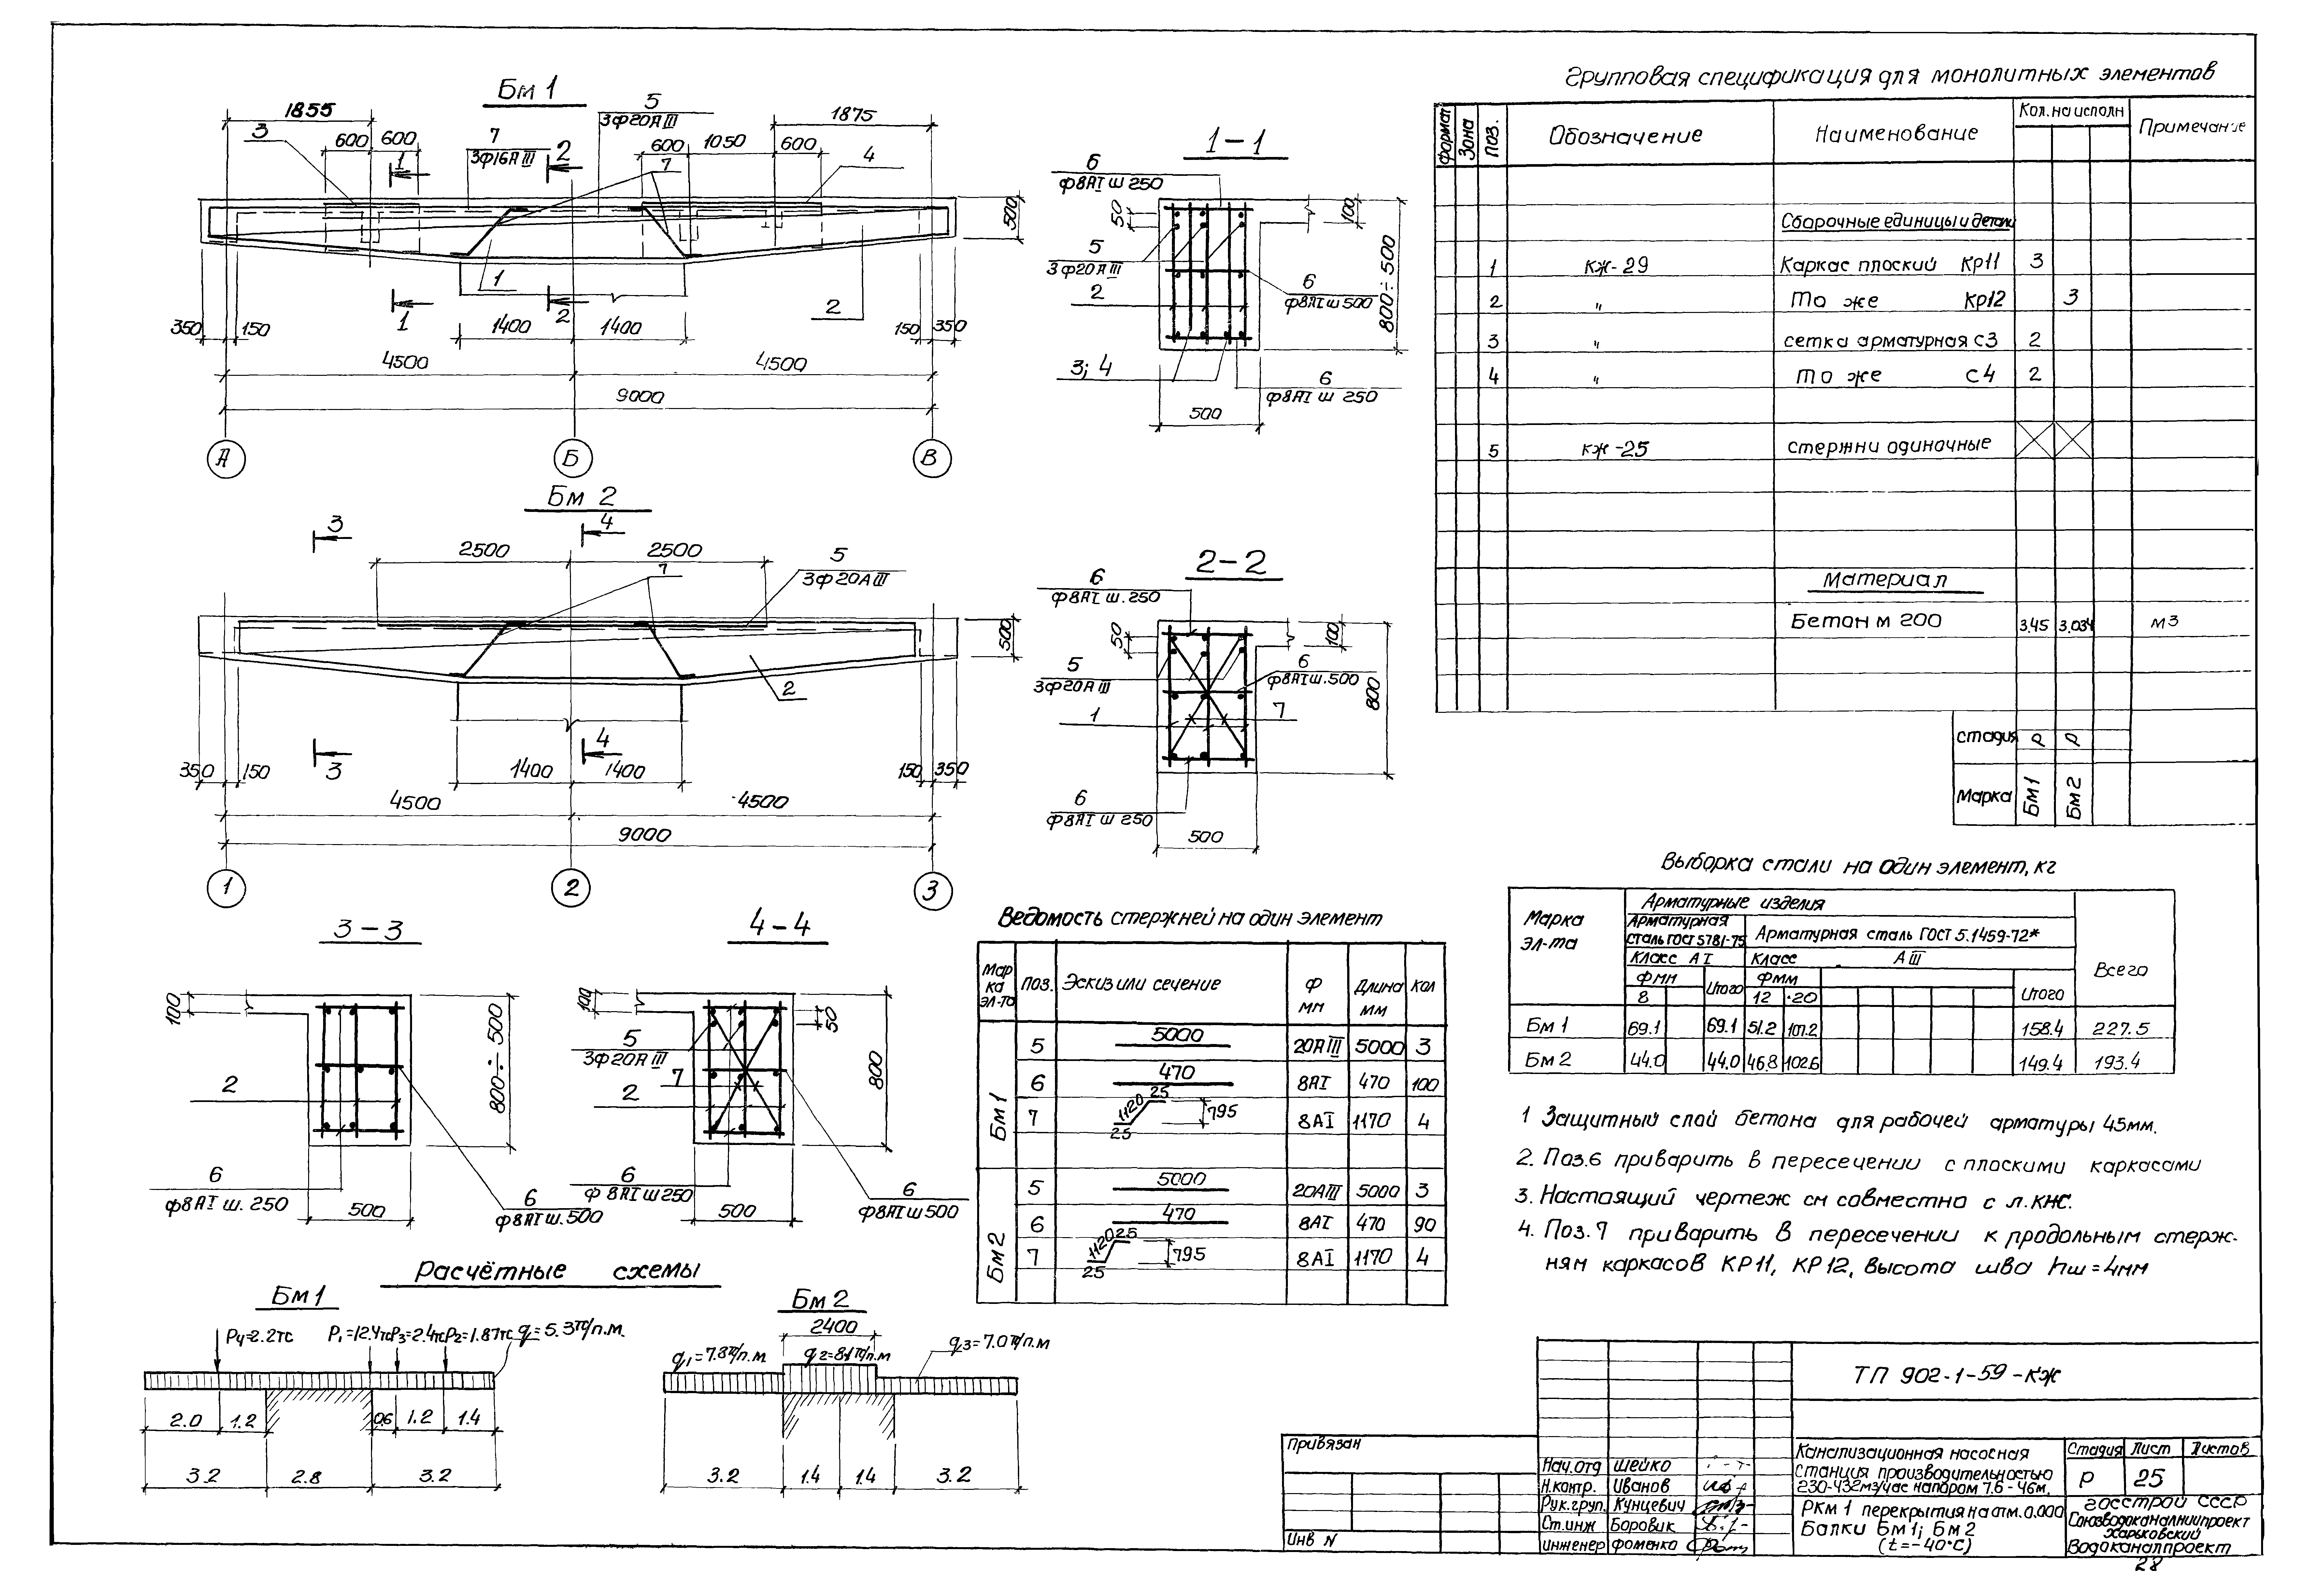 Бм 1
1855
5
3ф20АIII
1875
3
600
600
7
3ф16АIII
2
600
1050
600
4
1
7
500
1
2
350
150
1
1400
2
1400
150
350
4500
4500
9000
А
Б
В
Бм 2
3
4
2500
2500
5
3ф20АIII
7
500
2
350
150
3
4
1400
1400
150
350
4500
4500
9000
1
2
3
1-1
6
ф8АI ш 250
50
100
5
3ф20АIII
6
ф8АI ш 500
2
800÷500
3; 4
6
ф8АI ш 250
500
2-2
6
ф8АI ш. 250
50
100
5
3ф20АIII
6
ф8АI ш.500
1
7
800
6
ф8АI ш 250
500
3-3
100
2
800÷500
6
ф8АI ш. 250
500
6
ф8АI ш.500
4-4
100
50
5
3ф20АIII
7
2
800
6
ф 8АI ш 250
500
6
ф8АI ш 500
Расчётные схемы
Бм 1
P4=2.2тс P1=12.4тс P3=2.4тс P2=1.87тс q=5.3т/п.м.
2.0 1.2 0.6 1.2 1.4
3.2 2.8 3.2
Бм 2
2400
q1=7.8т/п.м q2=8.1т/п.м q3=7.0т/п.м
3.2 1.4 1.4 3.2
Групповая спецификация для монолитных элементов
Формат Зона Поз. Обозначение Наименование Кол. на исполн Примечание
Сборочные единицы и детали
1 КЖ-29 Каркас плоский Кр11 3
2 " То же Кр12 3
3 " сетка арматурная С3 2
4 " То же С4 2
5 КЖ-25 стержни одиночные
Материал
Бетон м 200 3.45 3.034 м3
стадия Р Р
Марка Бм 1 Бм 2
Выборка стали на один элемент, кг
Марка эл-та
Арматурные изделия
Арматурная сталь ГОСТ 5781-75
Арматурная сталь ГОСТ 5.1459-72*
Класс АI Класс АIII
Фмм Итого Фмм Итого Всего
8 12 20
Бм 1 69.1 69.1 51.2 107.2 158.4 227.5
Бм 2 44.0 44.0 46.8 102.6 149.4 193.4
Ведомость стержней на один элемент
Мар ка эл-та Поз. Эскиз или сечение Ф мм Длина мм Кол
Бм 1
5 5000 20АIII 5000 3
6 470 8АI 470 100
7 25 1120 25 795 8АI 1170 4
Бм 2
5 5000 20АIII 5000 3
6 470 8АI 470 90
7 25 1120 25 795 8АI 1170 4
1 Защитный слой бетона для рабочей арматуры 45мм.
2. Поз.6 приварить в пересечении с плоскими каркасами
3. Настоящий чертеж см совместно с л.КЖ6.
4. Поз.7 приварить в пересечении к продольным стерж-
ням каркасов КР11, КР12, высота шва hш=4мм
ТП 902-1-59-КЖ
Привязан
Инв N
Нач.отд Шейко
Н.контр. Иванов
Рук.груп. Кунцевич
Ст.инж Боровик
инженер Фоменко
Канализационная насосная
Станция производительностью
230-432м3/час напором 7.6-46м.
Стадия Лист Листов
Р 25
РКМ 1 перекрытия на отм. 0.000
Балки Бм1; Бм 2
(t=-40°С)
Госстрой СССР
Союзводоканалниипроект
Харьковский
Водоканалпроект
28